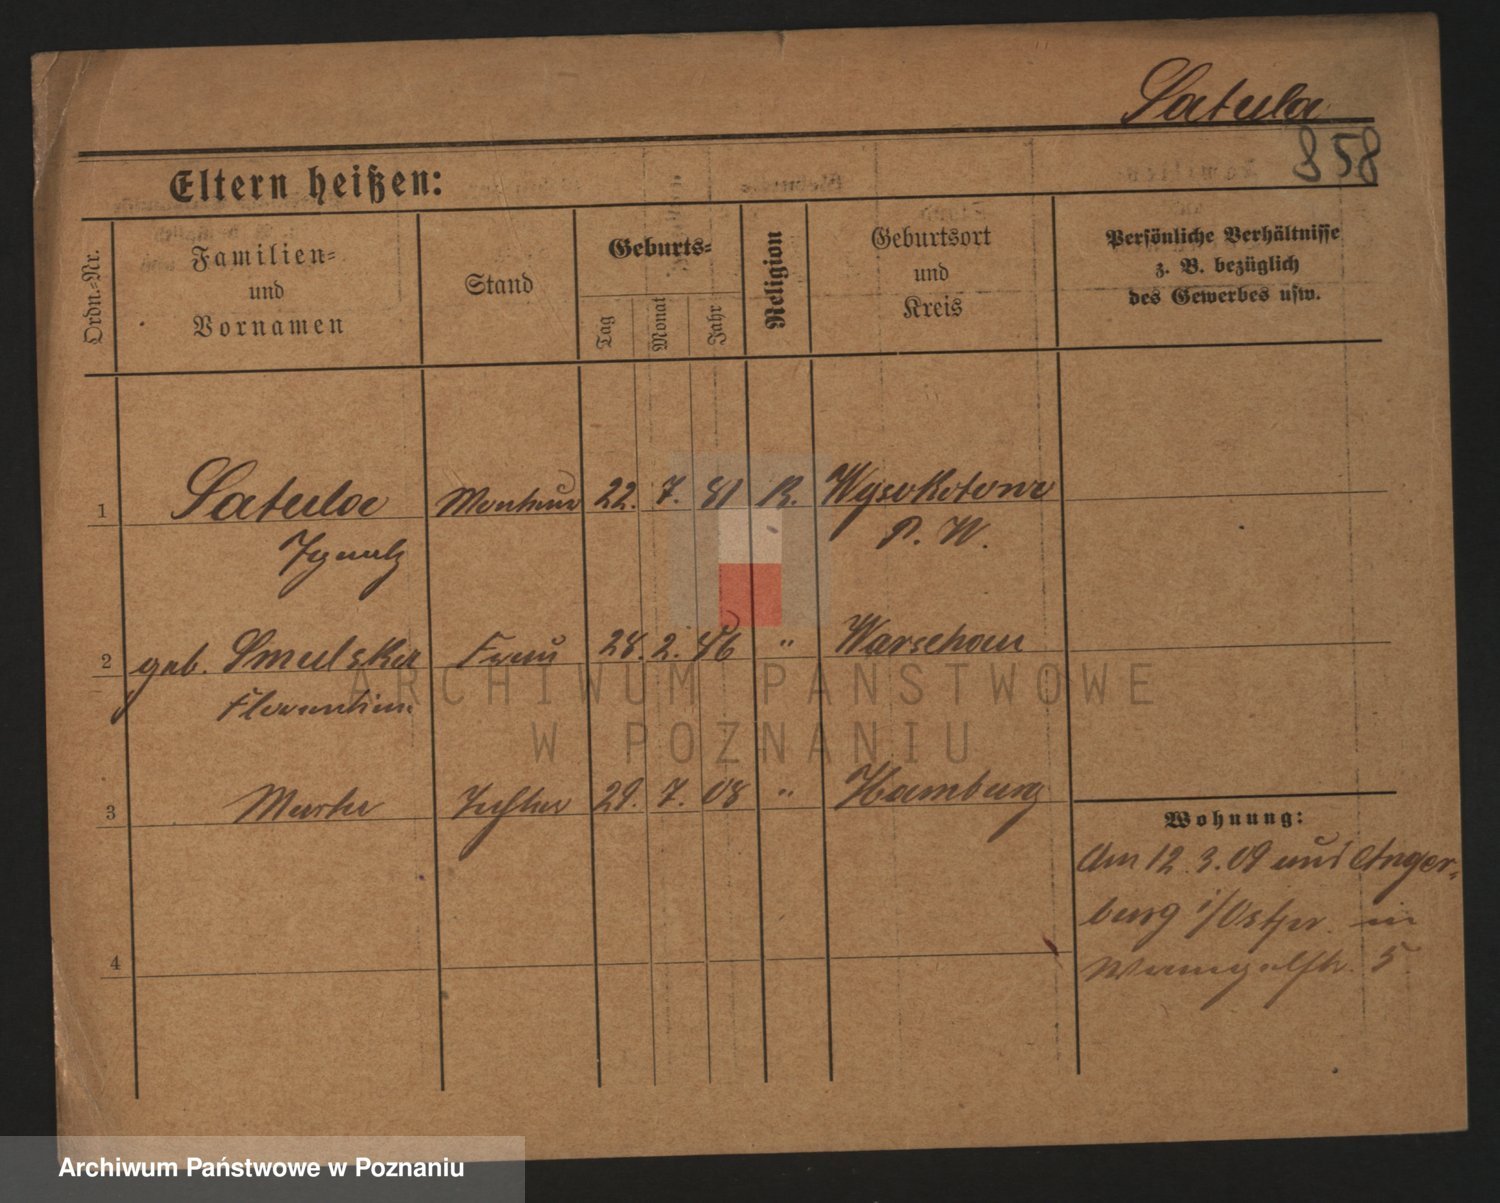 Satula
858
Eltern heißen:
Ordn.-Nr.
Familien-
und
Vornamen
Stand
Geburts-
Tag
Monat
Jahr
Religion
Geburtsort
und
Kreis
Persönliche Verhältnisse
z. B. bezüglich
des Gewerbes usw.
1 Satula Monteur 22. 7. 81 R. Wysokotowo
Ignatz P. W.
2 geb. Smulska Frau 28. 2. 86 " Warschau
Florentine
3 Martha Tochter 29. 7. 08 " Hamburg
Wohnung:
Am 12. 3. 09 aus Anger-
burg i/Ostpr. in
Wrangelstr. 5
4
ARCHIWUM PAŃSTWOWE
W POZNANIU
Archiwum Państwowe w Poznaniu